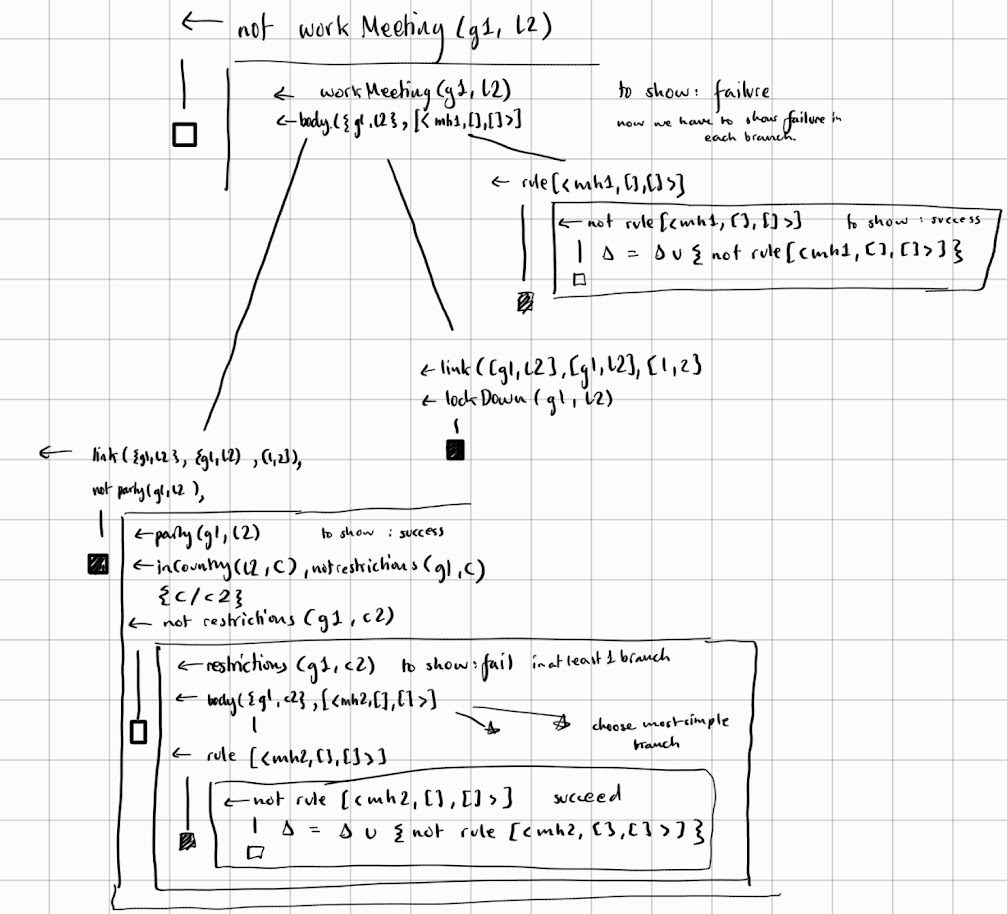 ← not workMeeting (g1, l2)
← workMeeting (g1, l2) to show: failure
← body ({g1, l2}, [<mh1, [], []>] now we have to show failure in
each branch.
← rule [<mh1, [], []>]
← not rule [<mh1, [], []>] to show: success
Δ = Δ ∪ { not rule [<mh1, [], []>] }
← link ([g1, l2], [g1, l2], [1, 2]
← lockDown (g1, l2)
← link ({g1, l2}, {g1, l2}, [1, 2]),
not party (g1, l2),
← party (g1, l2) to show: success
← inCountry (l2, C), not restrictions (g1, C)
{C/c2}
← not restrictions (g1, c2)
← restrictions (g1, c2) to show: fail in at least 1 branch
← body ({g1, c2}, [<mh2, [], []>]
choose most simple
branch
← rule [<mh2, [], []>]
← not rule [<mh2, [], []>] succeed
Δ = Δ ∪ { not rule [<mh2, [], []>] }